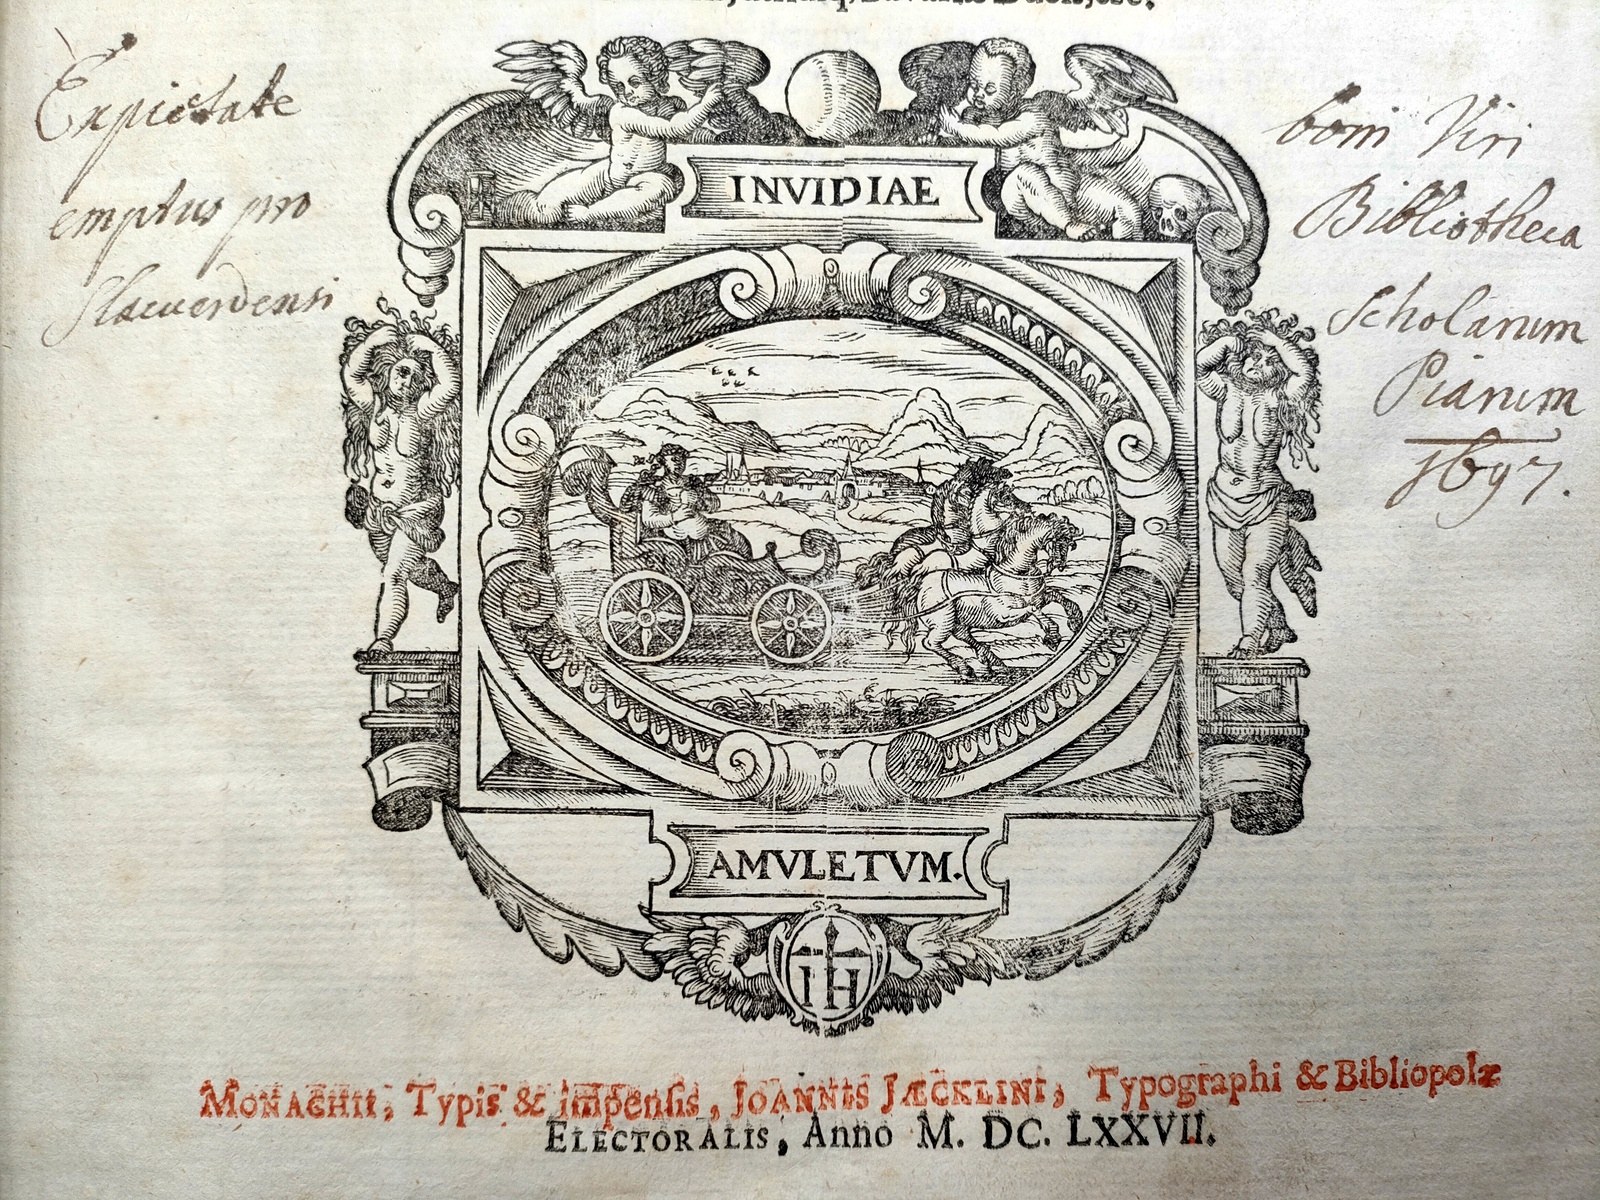 Bavariæ Ducis, etc.
Expietate
boni Viri
emptus pro
Bibliotheca
Slacuerdensi
Scholarum
Piarum
1697.
INVIDIAE
AMVLETVM.
IH
MONACHII, Typis & impensis, JOANNIS JÆCKLINI, Typographi & Bibliopolæ
ELECTORALIS, Anno M. DC. LXXVII.